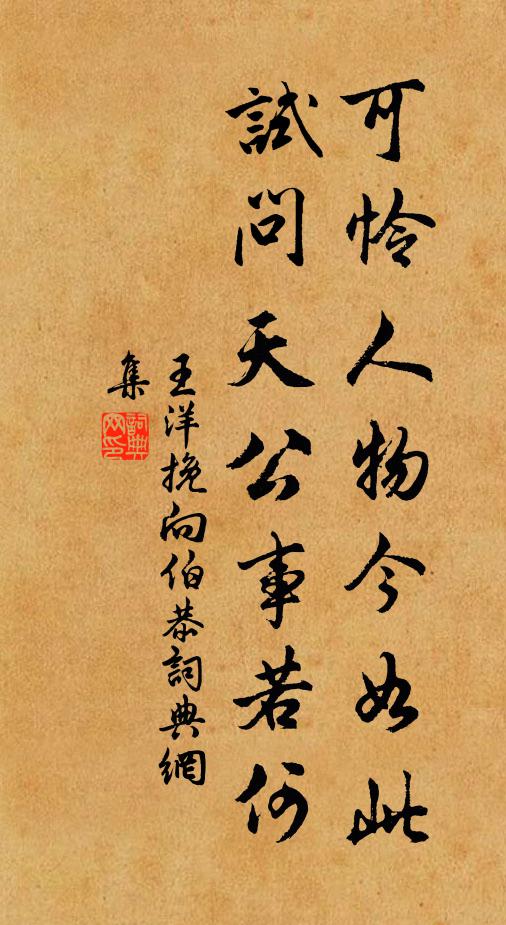 可怜人物今如此
試問天公事若何
王洋挽向伯恭詞典網
集
詞典网印